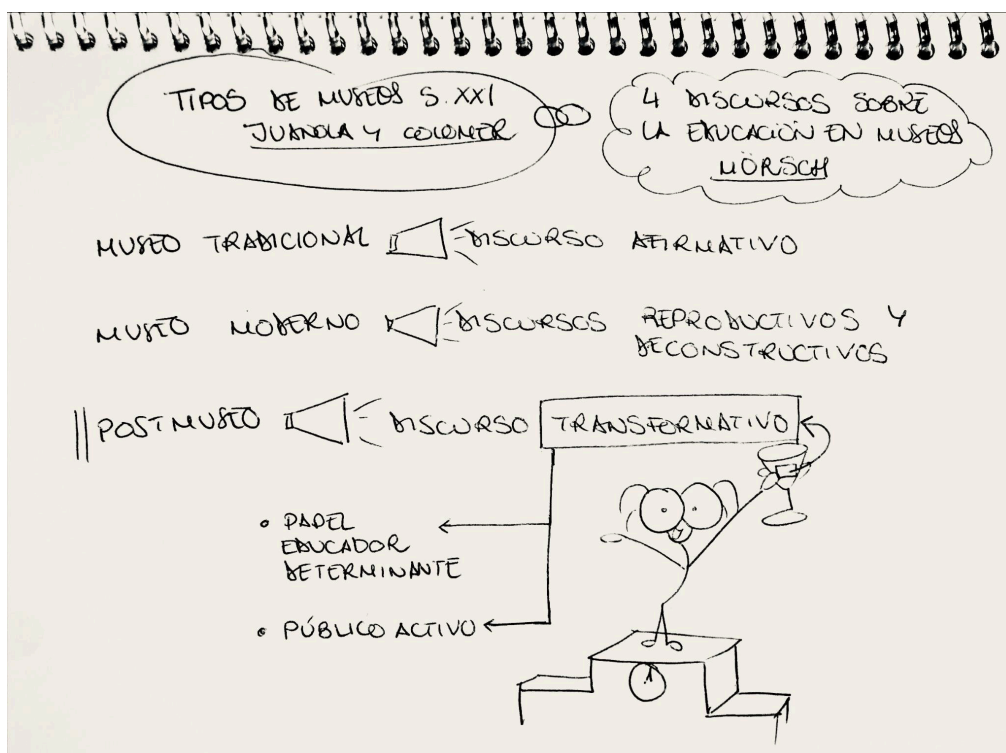 TIPOS DE MUSEOS S. XXI
JUANOLA Y COLOMER
4 DISCURSOS SOBRE
LA EDUCACIÓN EN MUSEOS
MÖRSCH
MUSEO TRADICIONAL DISCURSO AFIRMATIVO
MUSEO MODERNO DISCURSOS REPRODUCTIVOS Y
DECONSTRUCTIVOS
POSTMUSEO DISCURSO TRANSFORMATIVO
• PAPEL
EDUCADOR
DETERMINANTE
• PÚBLICO ACTIVO
1